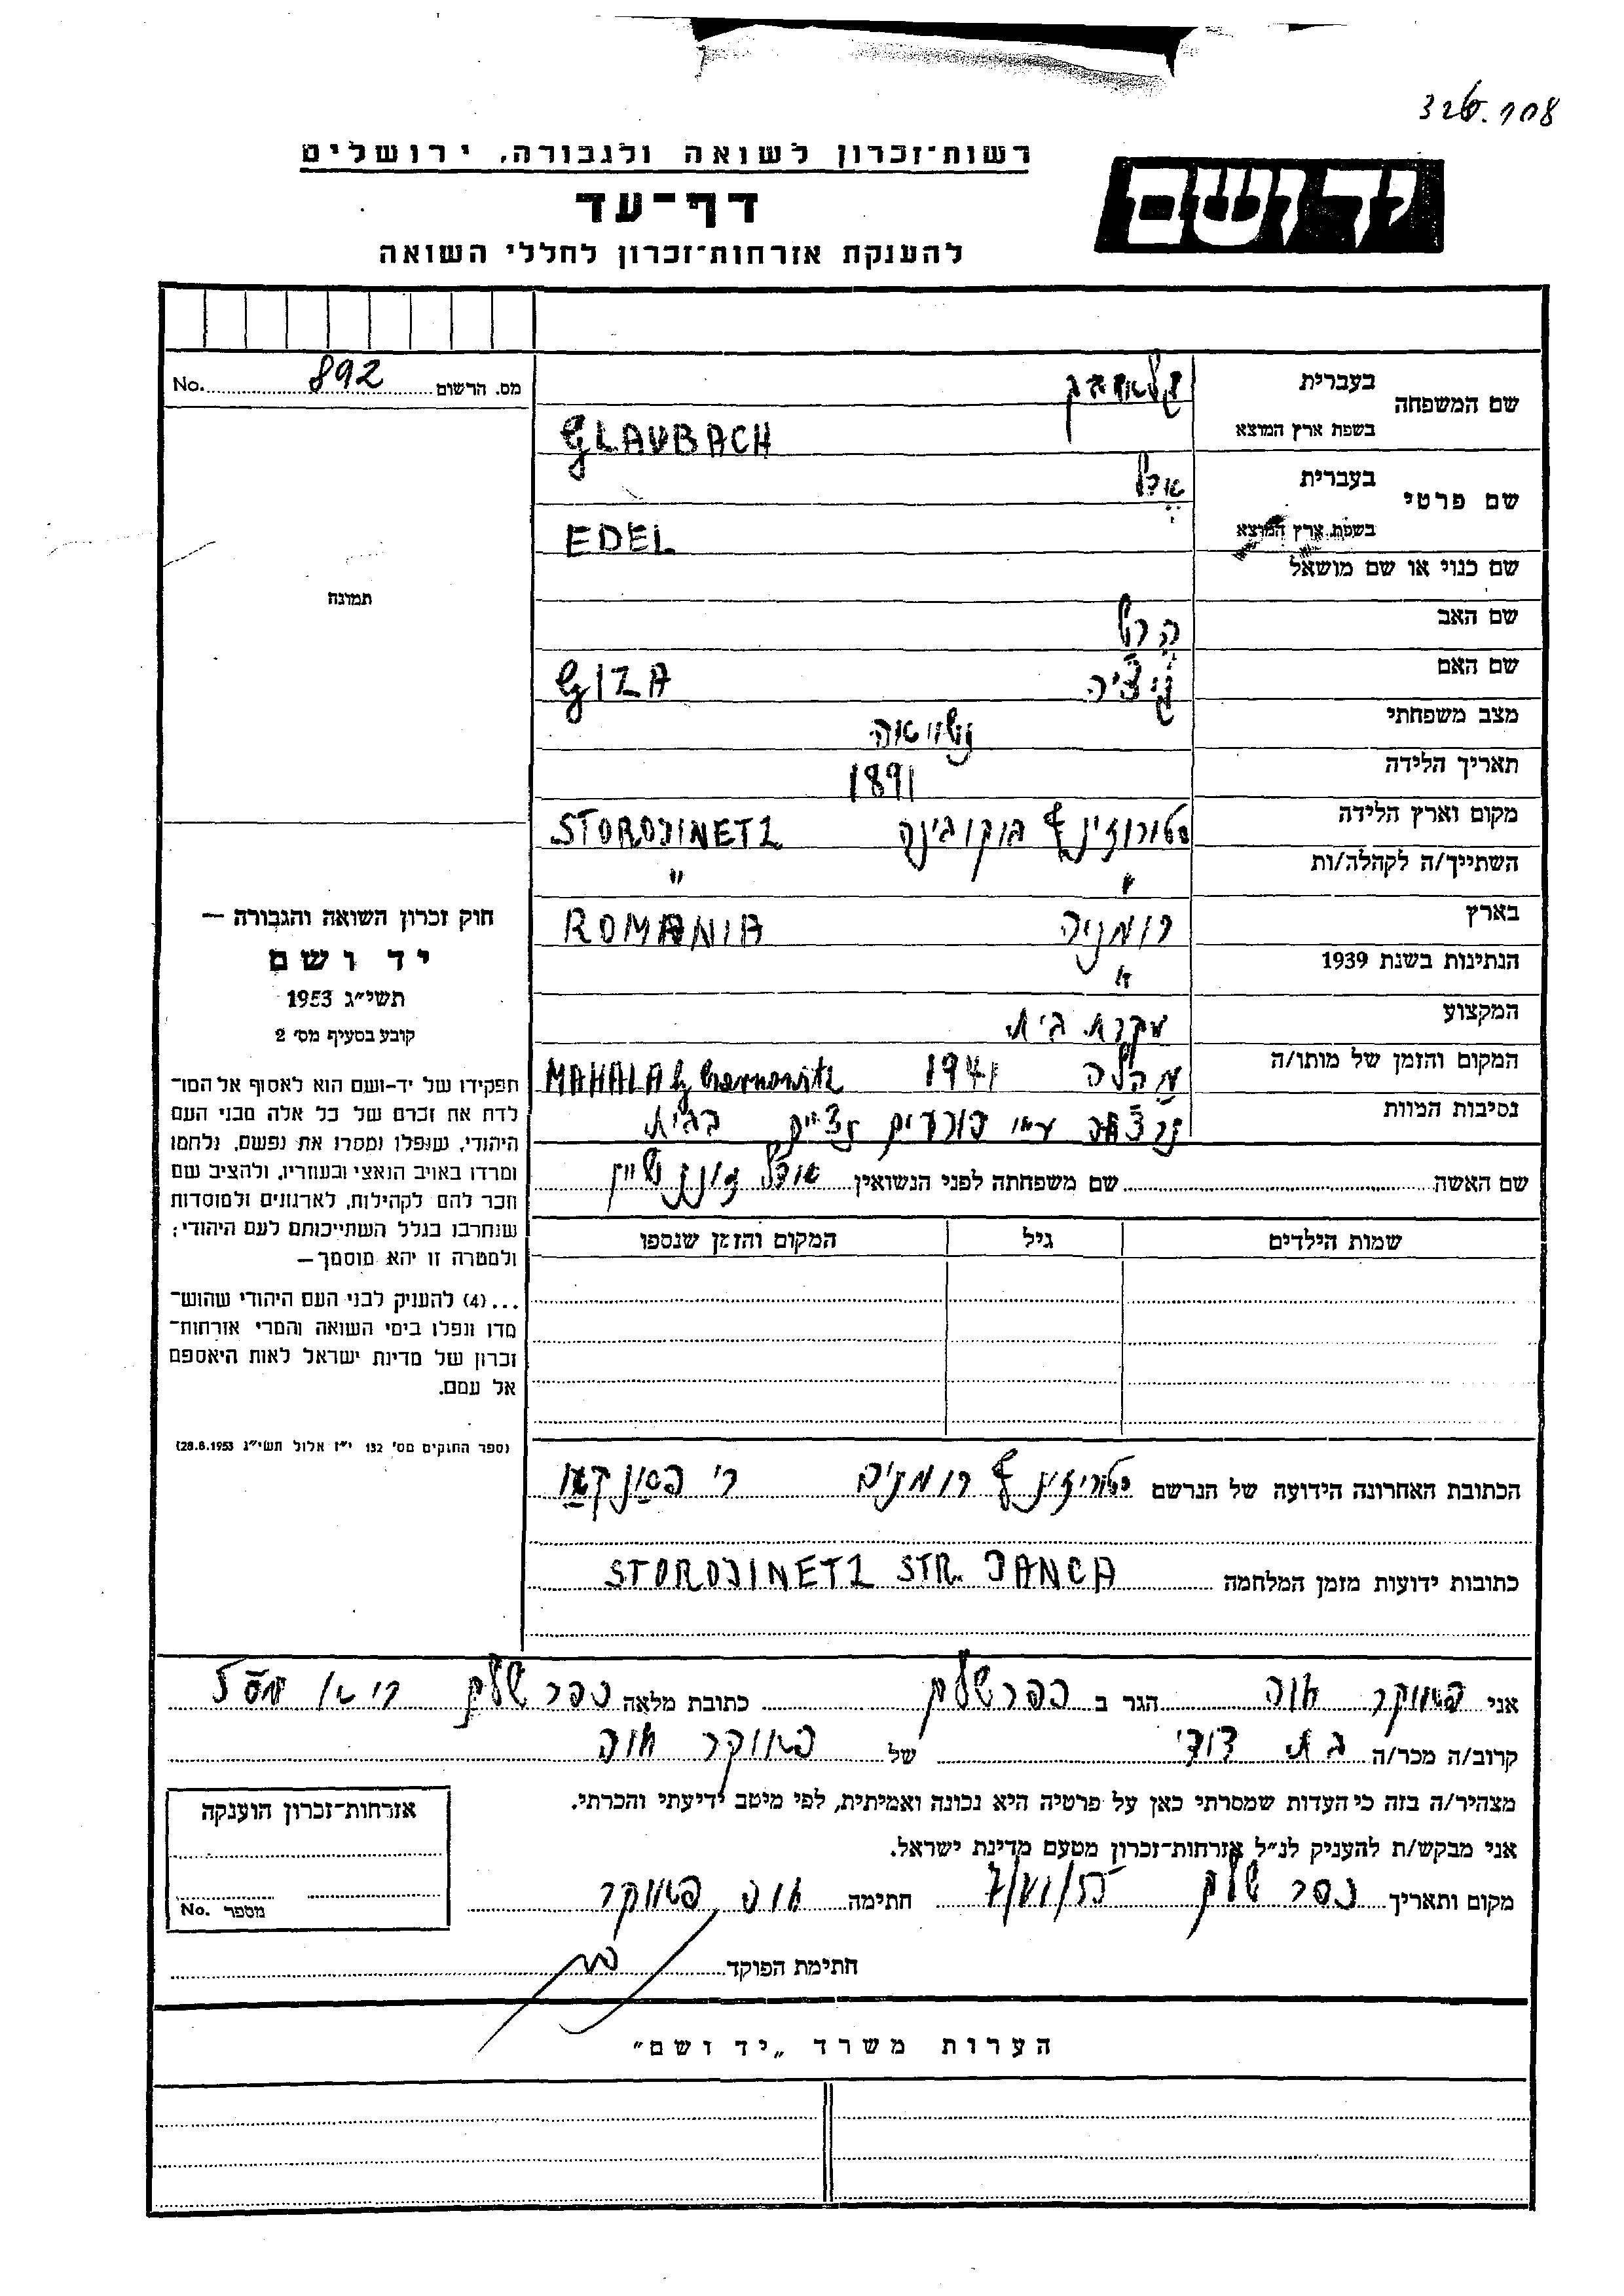 328.108
רשות־זכרון לשואה ולגבורה, ירושלים
יד ושם
דף־עד
להענקת אזרחות־זכרון לחללי השואה
מס. הרשום 892 No.
שם המשפחה
בעברית גלאובך
בשפת ארץ המוצא GLAUBACH
שם פרטי
בעברית אדל
בשפת ארץ המוצא EDEL
שם כנוי או שם מושאל
תמונה
שם האב הרש
שם האם GIZA
מצב משפחתי נשואה
תאריך הלידה 1891
מקום וארץ הלידה בוקובינה STOROJINETZ
השתייך/ה לקהלה/ות " "
בארץ רומניה ROMANIA
הנתינות בשנת 1939 "
המקצוע עקרת בית
המקום והזמן של מותו/ה מהלה 1941 MAHALA
נסיבות המוות בבית
שם האשה שם משפחתה לפני הנשואין
שמות הילדים גיל המקום והזמן שנספו
חוק זכרון השואה והגבורה —
יד ושם
תשי״ג 1953
קובע בסעיף מס׳ 2
תפקידו של יד־ושם הוא לאסוף אל המו־
לדת את זכרם של כל אלה מבני העם
היהודי, שנפלו ומסרו את נפשם, נלחמו
ומרדו באויב הנאצי ובעוזריו, ולהציב שם
וזכר להם לקהילות, לארגונים ולמוסדות
שנחרבו בגלל השתייכותם לעם היהודי;
ולמטרה זו יהא מוסמך—
...(4) להעניק לבני העם היהודי שהוש־
מדו ונפלו בימי השואה והמרי אזרחות־
זכרון של מדינת ישראל לאות היאספם
אל עמם.
(ספר החוקים מס׳ 132 י״ז אלול תשי״ג 28.8.1953)
הכתובת האחרונה הידועה של הנרשם רומניה רי
כתובות ידועות מזמן המלחמה STOROJINETZ STR. JANCA
אני הגר ב כתובת מלאה
קרוב/ה מכר/ה בת דודי של
מצהיר/ה בזה כי העדות שמסרתי כאן על פרטיה היא נכונה ואמיתית, לפי מיטב ידיעתי והכרתי.
אני מבקש/ת להעניק לנ״ל אזרחות־זכרון מטעם מדינת ישראל.
מקום ותאריך חתימה
אזרחות־זכרון הוענקה
מספר No.
חתימת הפוקד
הערות משרד „יד ושם״